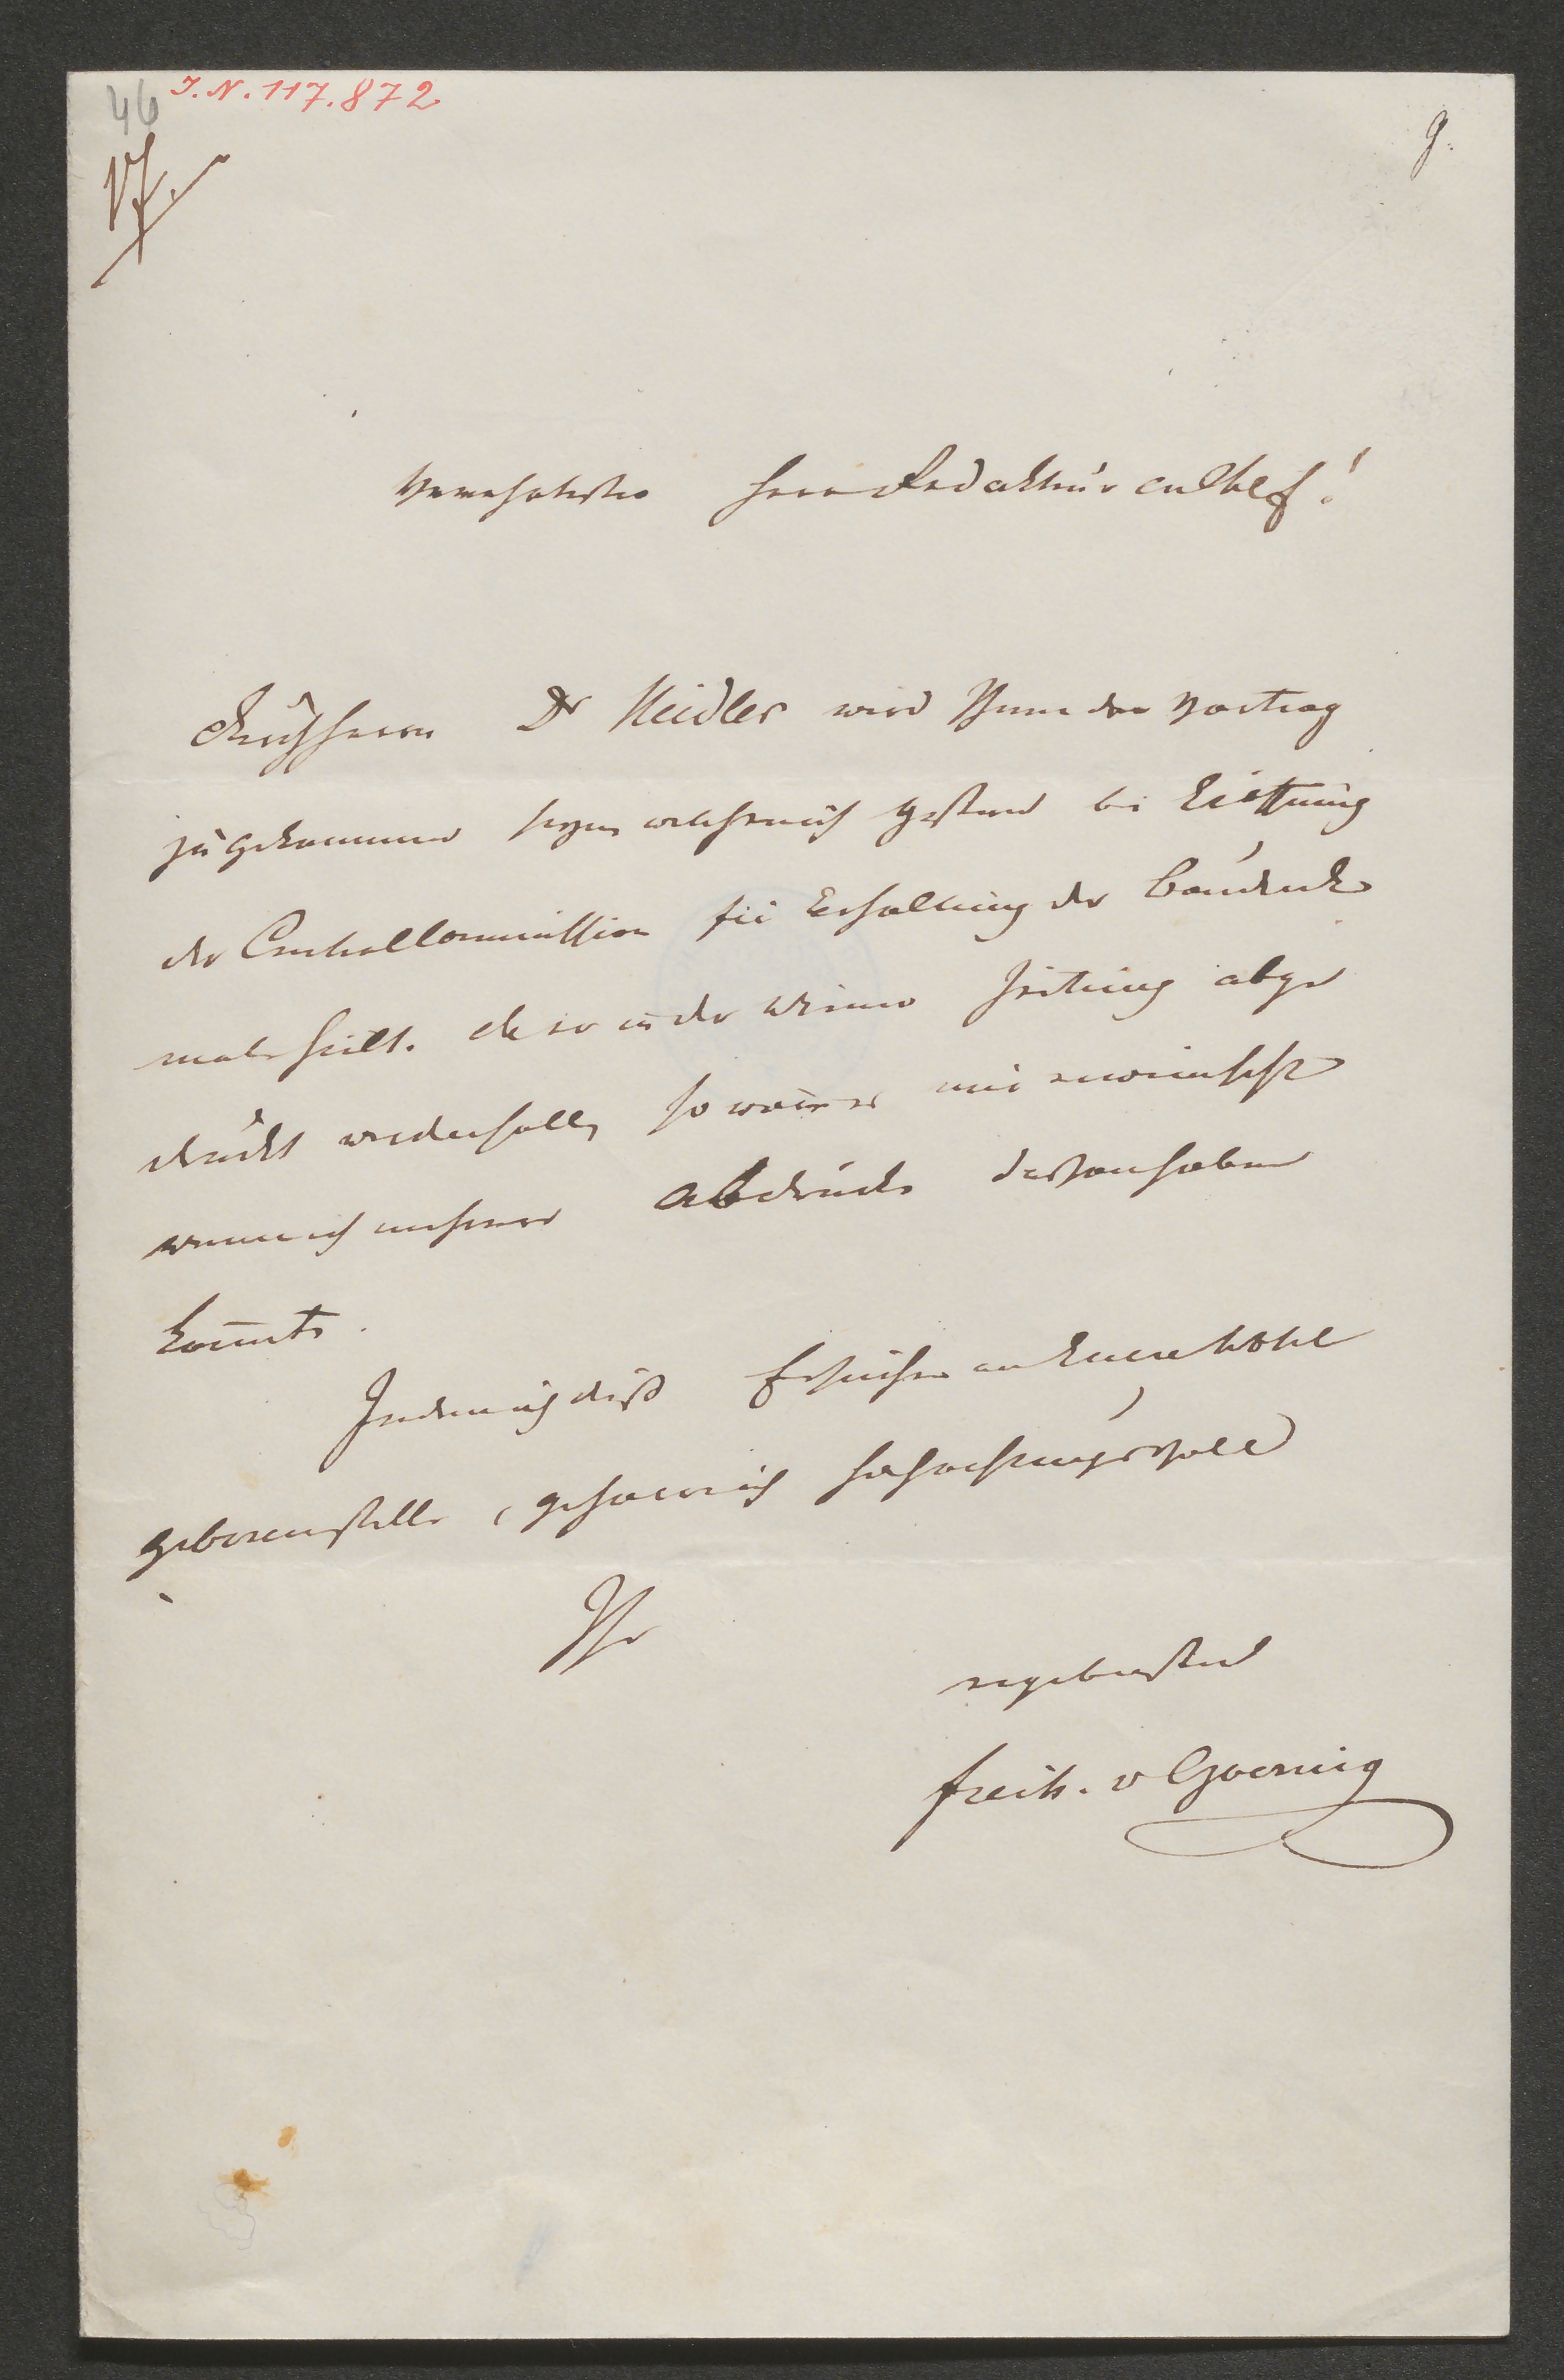 46 I.N. 117.872
17.
g.
Verehrtester Herr Redakteur en Chef!
Durch Herrn Dr Heider wird Ihnen der Vortrag
zugekommen seyn, welchen ich gestern bei Eröffnung
der Centralcommission für Erhaltung der Baudenk
male hielt. Da er in der Wiener Zeitung abge
druckt werden soll, so wäre es mir erwünscht
wenn ich mehrere Abdrücke davon haben
könnte.
Indem ich dieß Ersuchen an Euere Wohl
geboren stelle, geharre ich hochachtungsvoll
Ihr
ergebenster
Freih. v Czoernig